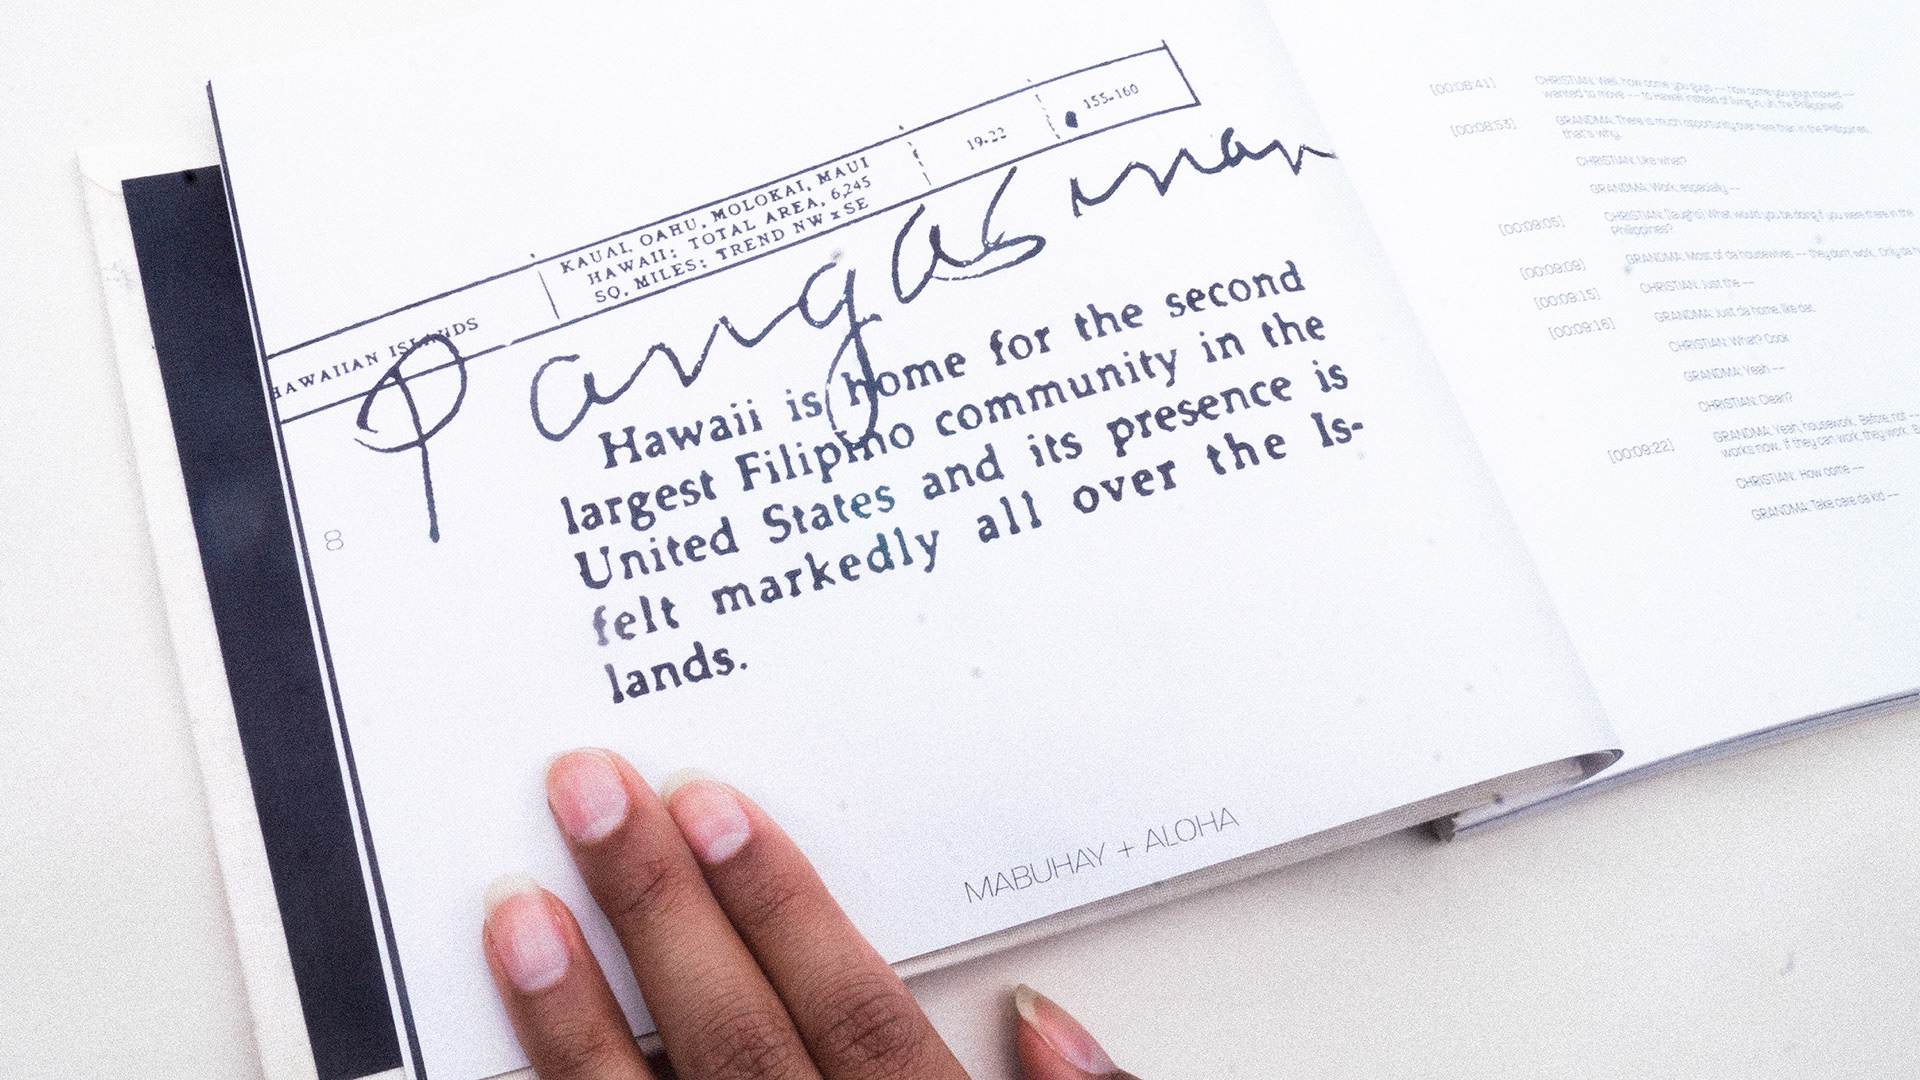 HAWAIIAN ISLANDS
KAUAI, OAHU, MOLOKAI, MAUI
HAWAII; TOTAL AREA, 6,245
SQ. MILES; TREND NW x SE
19-22
155-160
Pangasinan
Hawaii is home for the second
largest Filipino community in the
United States and its presence is
felt markedly all over the Is-
lands.
8
MABUHAY + ALOHA
[00:08:41]
CHRISTIAN: Well, how come you guys -- how come you guys moved --
wanted to move -- to Hawaii instead of living in, uh, the Philippines?
[00:08:53]
GRANDMA: There is much opportunity over here than in the Philippines,
that's why.
CHRISTIAN: Like what?
GRANDMA: Work, especially --
[00:09:05]
CHRISTIAN: [laughs] What would you be doing if you were there in the
Philippines?
[00:09:09]
GRANDMA: Most of da housewives -- they don't work. Only da
[00:09:15]
CHRISTIAN: Just the --
[00:09:16]
GRANDMA: Just da home, like dat.
CHRISTIAN: What? Cook
GRANDMA: Yeah --
CHRISTIAN: Clean?
[00:09:22]
GRANDMA: Yeah, housework. Before, not --
works now. If they can work, they work.
CHRISTIAN: How come --
GRANDMA: Take care da kid --